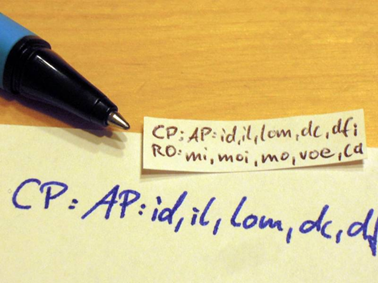 CP: AP: id, il, lom, dc, dfi
RO: mi, moi, mo, voe, ca
CP: AP: id, il, lom, dc, df